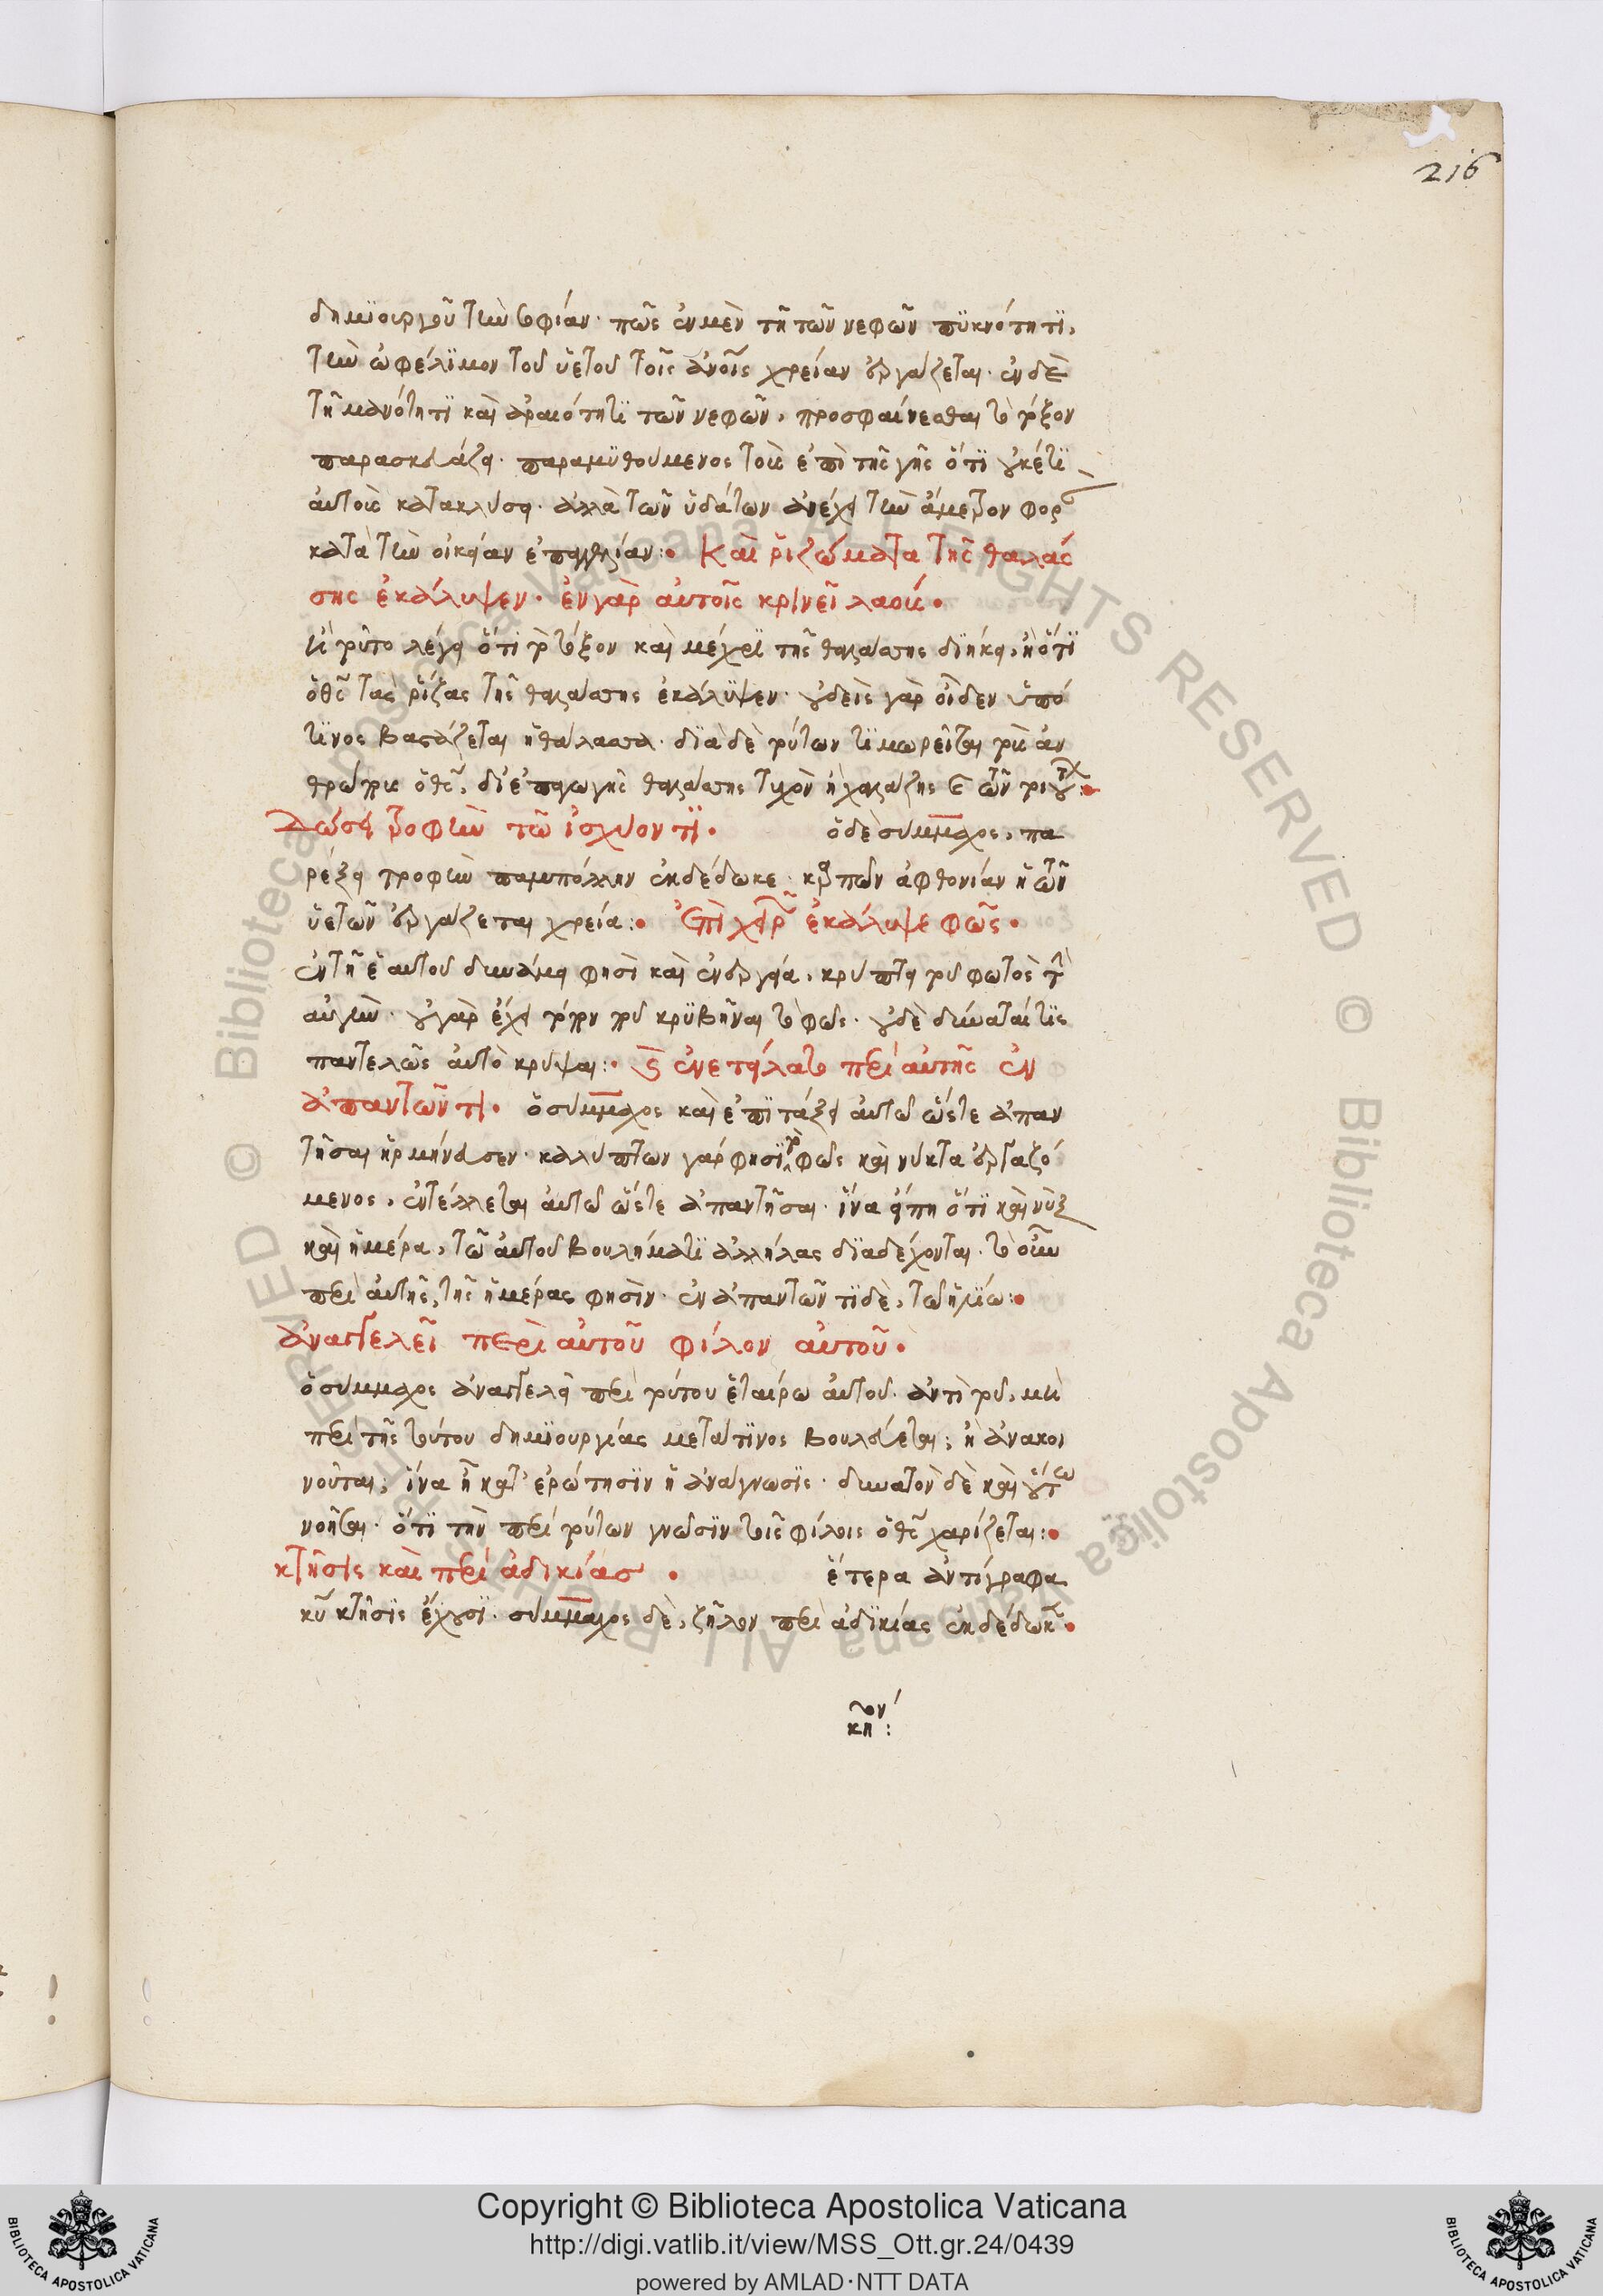 216
δημϊουργοῦ τὴν σοφίαν· πῶς ἐν μὲν τῆ τῶν νεφῶν πϋκνότητϊ,
τὴν ὠφέλϊμον τοῦ ὑετοῦ τοῖς ἀνοῖς χρείαν ἐργάζεται· ἐν δὲ
τῆ μανότητϊ καὶ ἀραιότητϊ τῶν νεφῶν, προσφαίνεσθαι τὸ τόξον
παρασκευάζει· παραμϋθούμενος τοὺς ἐπὶ τῆς γῆς ὅτϊ οὐκέτϊ
αὐτοὺς κατακλύσει· ἀλλὰ τῶν ὑδάτων ἀνέχει τὴν ἄμετρον φορὰν
κατὰ τὴν οἰκείαν ἐπαγγελίαν: Καὶ ῥιζώματα τῆς θαλάσ
σης ἐκάλυψεν· ἐν γὰρ αὐτοῖς κρινεῖ λαούς·
ἢ τοῦτο λέγει ὅτι τὸ τόξον καὶ μέχρϊ τῆς θαλάσσης διήκει, ἢ ὅτϊ
ὁ θς τὰς ῥίζας τῆς θαλάσσης ἐκάλυψεν· οὐδεὶς γὰρ οἶδεν ὑπό
τϊνος βαστάζεται ἡ θάλασσα· δϊὰ δὲ τούτων τϊμωρεῖται τοὺς ἀν
θρώπους ὁ θς, δι' ἐπαγωγῆς θαλάσσης τυχὸν ἢ χαλάζης
Δώσει τροφὴν τῶ ἰσχύοντϊ· ὁ δὲ σύμμαχος, πα
ρέξει τροφὴν παμπόλλην ἐκδέδωκε· καρπῶν ἀφθονίαν ἡ τῶν
ὑετῶν ἐργάζεται χρεία: Ἐπὶ χειρῶν ἐκάλυψε φῶς·
ἐν τῆ ἑαυτοῦ δυνάμει φησὶ καὶ ἐνεργεία, κρύπτει τοῦ φωτὸς τὴν
αὐγὴν· οὐ γὰρ ἔχει τόπον τοῦ κρϋβῆναι τὸ φῶς· οὐδὲ δύναταί τϊς
παντελῶς αὐτὸ κρύψαι: καὶ ἐνετείλατο περὶ αὐτῆς ἐν
ἀπαντῶντι· ὁ σύμμαχος καὶ ἐπϊτάξει αὐτῶ ὥστε ἀπαν
τῆσαι ἡρμήνευσεν· καλύπτων γάρ φησϊ τὸ φῶς καὶ νύκτα ἐργαζό
μενος, ἐντέλλεται αὐτῶ ὥστε ἀπαντῆσαι· ἵνα εἴπη ὅτϊ καὶ νὺξ
καὶ ἡμέρα, τῶ αὐτοῦ βουλήματϊ ἀλλήλας δϊαδέχονται· τὸ οὖν
περὶ αὐτῆς, τῆς ἡμέρας φησὶν· ἐν ἀπαντῶντϊ δὲ, τῶ ἡλίω:
ἀναγγελεῖ περὶ αὐτοῦ φίλον αὐτοῦ·
ὁ σύμμαχος ἀναγγελεῖ περὶ τούτου ἑταίρω αὐτοῦ· ἀντὶ τοῦ, μὴ
περὶ τῆς τούτου δημϊουργίας μετά τϊνος βουλεύεται; ἢ ἀνακοι
νοῦται; ἵνα ἦ κατ' ἐρώτησϊν ἡ ἀνάγνωσϊς· δυνατὸν δὲ καὶ οὕτω
νοῆσαι· ὅτϊ τὴν περὶ τούτων γνῶσϊν τοῖς φίλοις ὁ θς χαρίζεται:
κτῆσις καὶ περὶ ἀδικίας· ἕτερα ἀντίγραφα
κτῆσϊς ἔχουσϊ· σύμμαχος δὲ, ζῆλον περὶ ἀδϊκίας ἐκδέδωκεν·